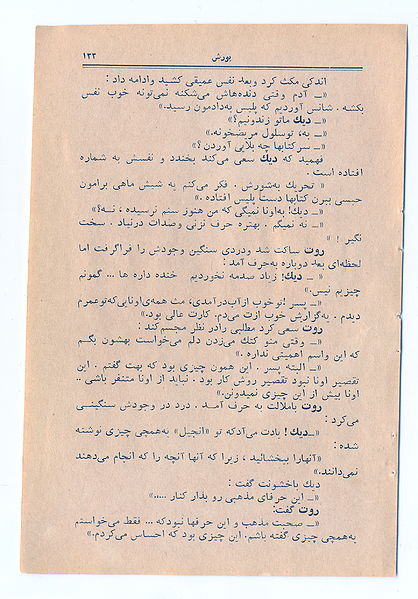 یورش ۱۳۳
اندکی مکث کرد وبعد نفس عمیقی کشید وادامه داد :
«ــ آدم وقتی دنده‌هاش می‌شکنه نمی‌تونه خوب نفس
بکشه . شانس آوردیم که پلیس به‌دادمون رسید.»
«ــ دیك ماتو زندونیم؟»
«ــ به، توسلول مریضخونه.»
«ــ سرکتابها چه بلایی آوردن ؟»
فهمید که دیك سعی می‌کند بخندد و نفسش به شماره
افتاده است .
« تحریك به‌شورش . فکر می‌کنم یه شیش ماهی برامون
حبسی ببرن کتابها دست پلیس افتاده .»
«ــ دیك! به‌اونا نمیگی که من هنوز سنم نرسیده ، نــه؟»
«ــ نه نمیگم . بهتره حرف نزنی وصدات درنیاد . سخت
نگیر ! »
روت ساکت شد ودردی سنگین وجودش را فراگرفت اما
لحظه‌ای بعد دوباره به‌حرف آمد :
« ــ دیك! زیاد صدمه نخوردیم خنده داره ها ... گمونم
چیزیم نیس.»
«ــ پسر !توخوب ازآب‌درآمدی، مث همه‌ی‌اونایی‌که‌توعمرم
دیدم . به‌گزارش خوب ازت می‌دم. کارت عالی بود.»
روت سعی کرد مطلبی رادر نظر مجسم‌کند :
«ــ وقتی منو کتك می‌زدن دلم می‌خواست بهشون بگـم
که این واسم اهمیتی نداره .»
«ــ البته پسر . این همون چیزی بود که بهت گفتم . این
تقصیر اونا نبود تقصیر روش کار بود . نباید از اونا متنفر باشی ..
اونا بیش از این چیزی نمیدونن.»
روت باملالت به حرف آمـد . درد در وجودش سنگینـی
می‌کرد :
«ــ دیك! یادت می‌آدکه تو «انجیل» یه‌همچی چیزی نوشته
شده :
«آنهارا ببخشائید ، زیرا که آنها آنچه را که انجام می‌دهند
نمی‌دانند.»
دیك باخشونت گفت :
«ــ این حرفای مذهبی رو بذار کنار .....»
روت گفت:
«ــ صحبت مذهب و این حرفها نبودکه ... فقط می‌خواستم
یه‌همچی چیزی گفته باشم. این چیزی بود که احساس می‌کردم.»